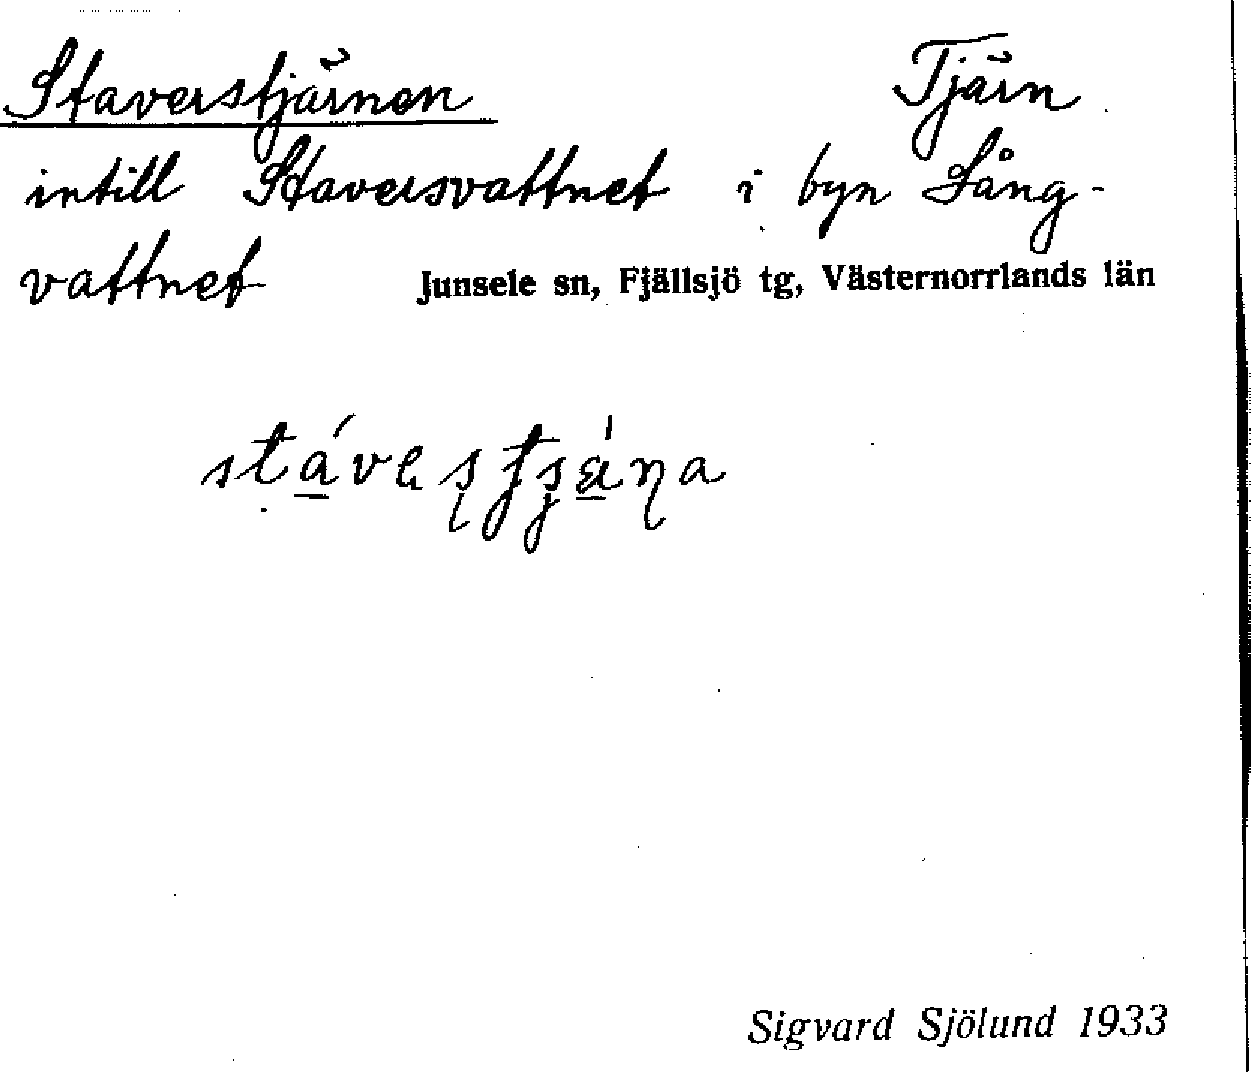 Staverstjärnen Tjärn
intill Staversvattnet i byn Lång-
vattnet Junsele sn, Fjällsjö tg, Västernorrlands län
Sigvard Sjölund 1933